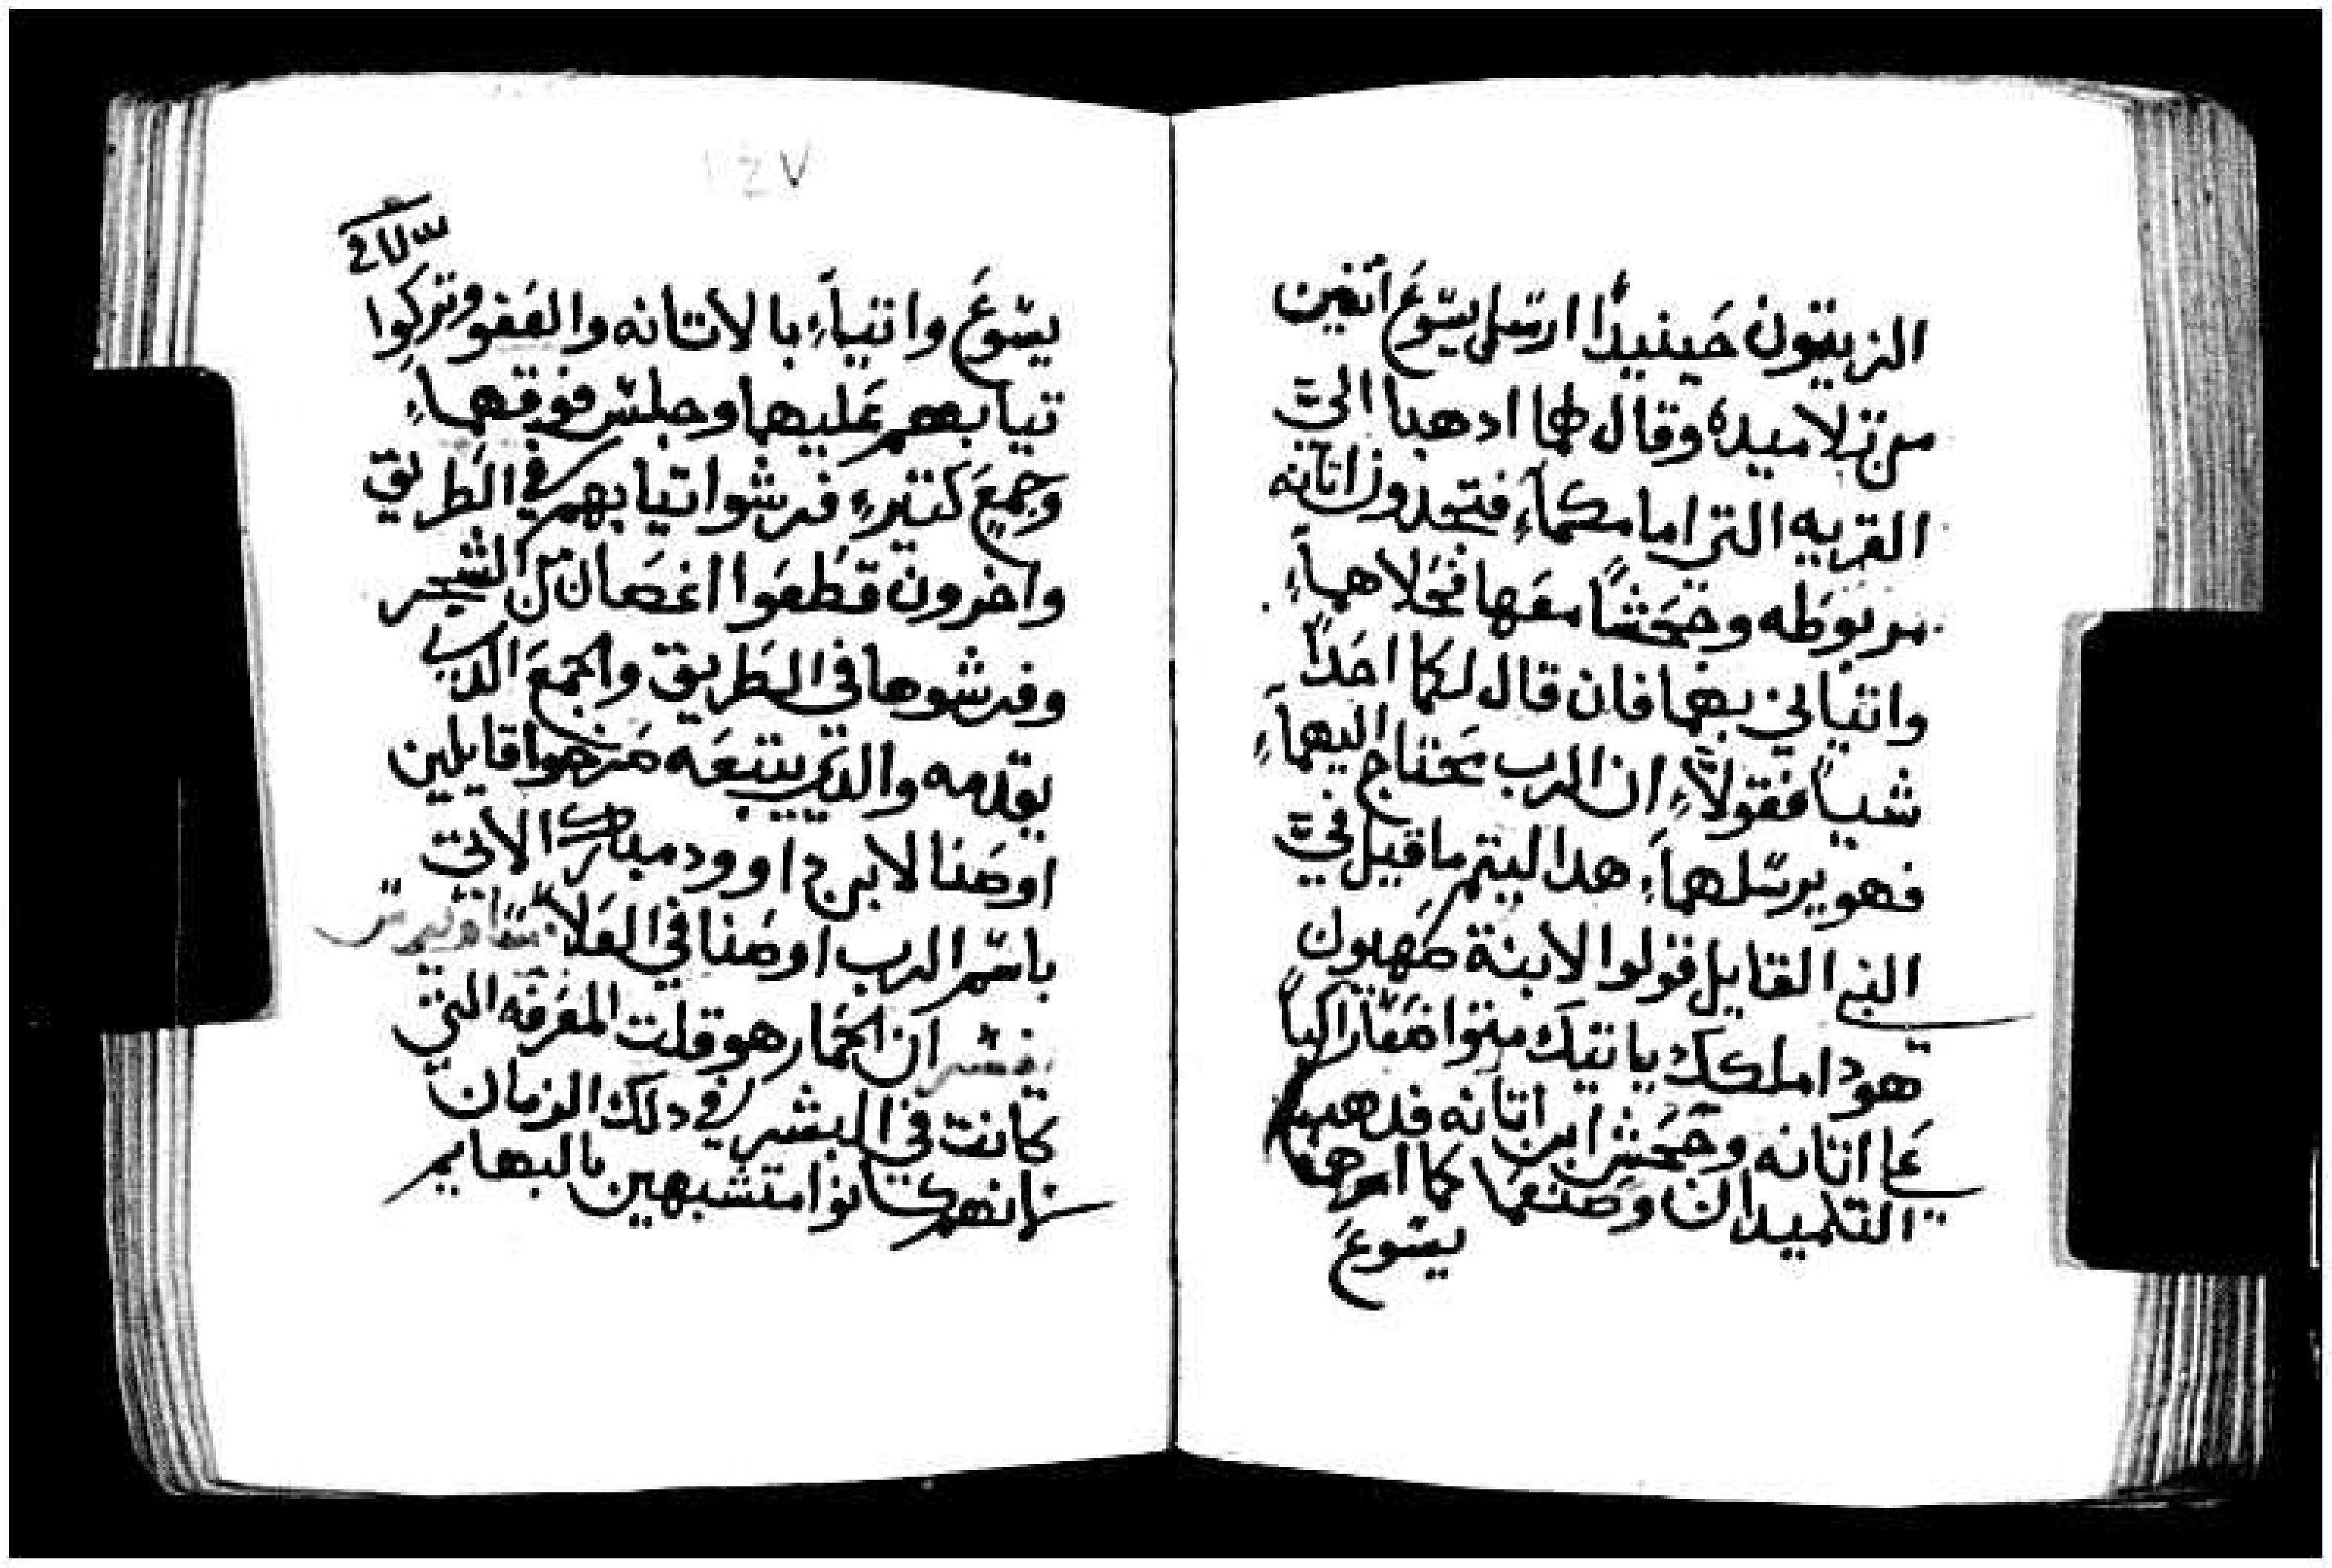 الزيتون حينيدًا ارسل يسوع اثنين
من تلاميده وقال لهما ادهبا الي
القريه التي امامكما فتجدون اتانه
مربوطه وجحشًا معها فحلاهما
واتياني بهما فان قال لكما احدًا
شياً فقولا ان الرب محتاج اليهما
فهو يرسلهما هدا ليتم ما قيل في
النبي القايل قولوا لابنة صهيون
هودا ملكك ياتيك متواضعًا راكباً
علي اتانه وجحش ابن اتانه فدهبا
التلميدان وصنعا كما امرهما
يسوع
يسوع واتياء بالاتانه والعفو وتركوا
تيابهم عليهما وجلس فوقهما
وجمع كتير فرشوا تيابهم في الطريق
واخرون قطعوا اغصان من الشجر
وفرشوها في الطريق والجمع الدي
يقدمه والدي يتبعه صرخوا قايلين
اوصنا لابن داوود مبارك الاتي
باسم الرب اوصنا في العلا
تفسير ان الحمار هو قلت المعرفه التي
كانت في البشر في دلك الزمان
لانهم كانوا متشبهين بالبهايم